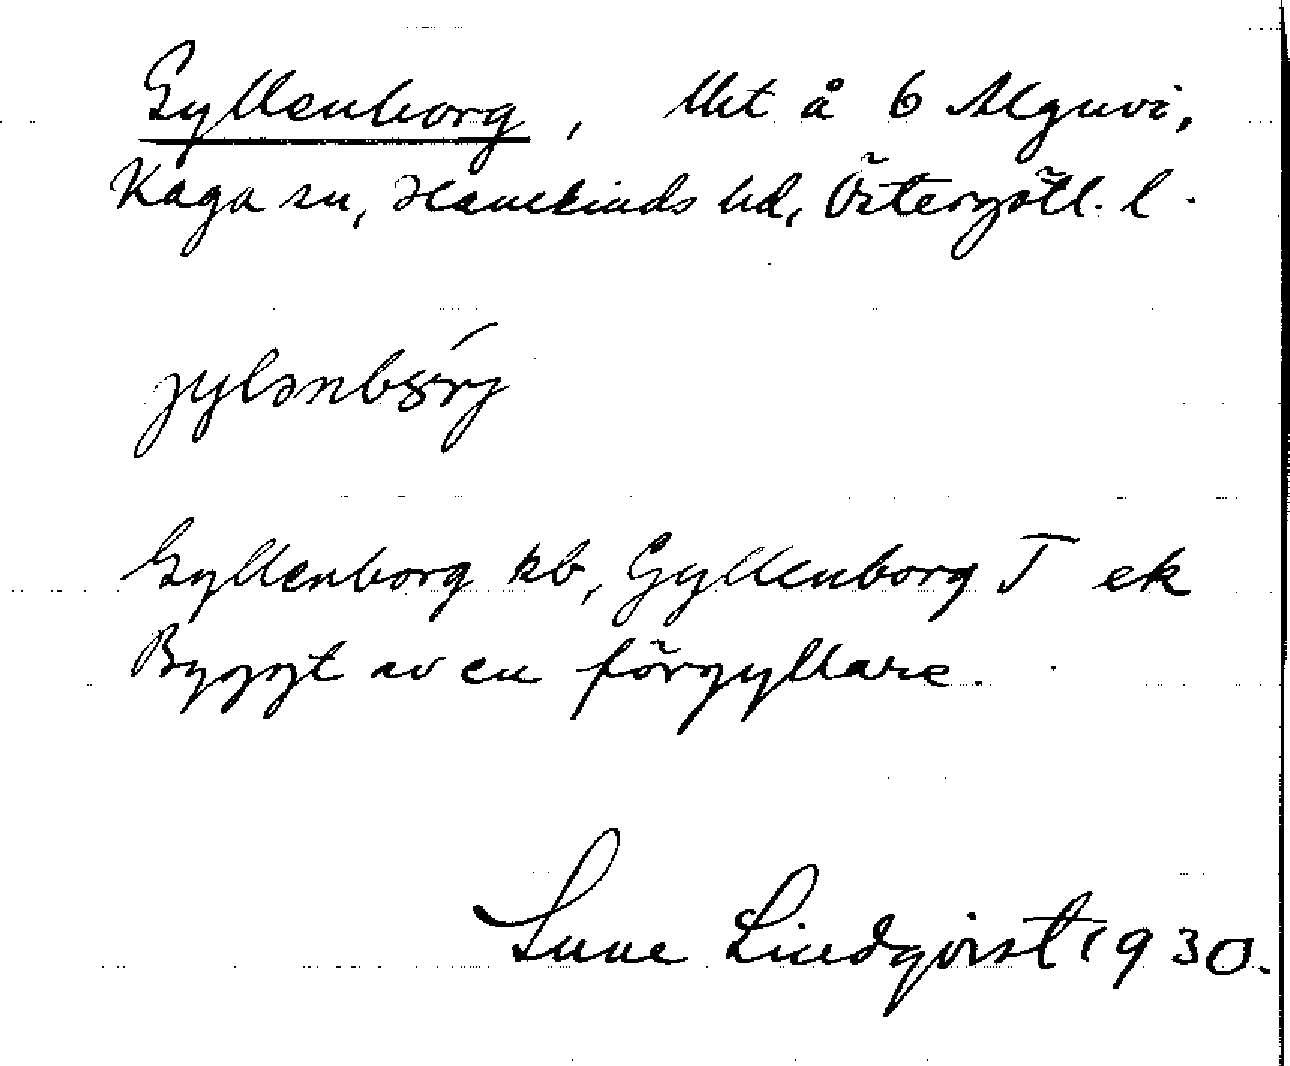 Gyllenborg, lht å 6 Alguvi,
Kaga sn, Hanekinds hd, Östergötl. l.
Gyllenborg kb, Gyllenborg T ek
Byggt av en förgyllare.
Sune Lindqvist 1930.